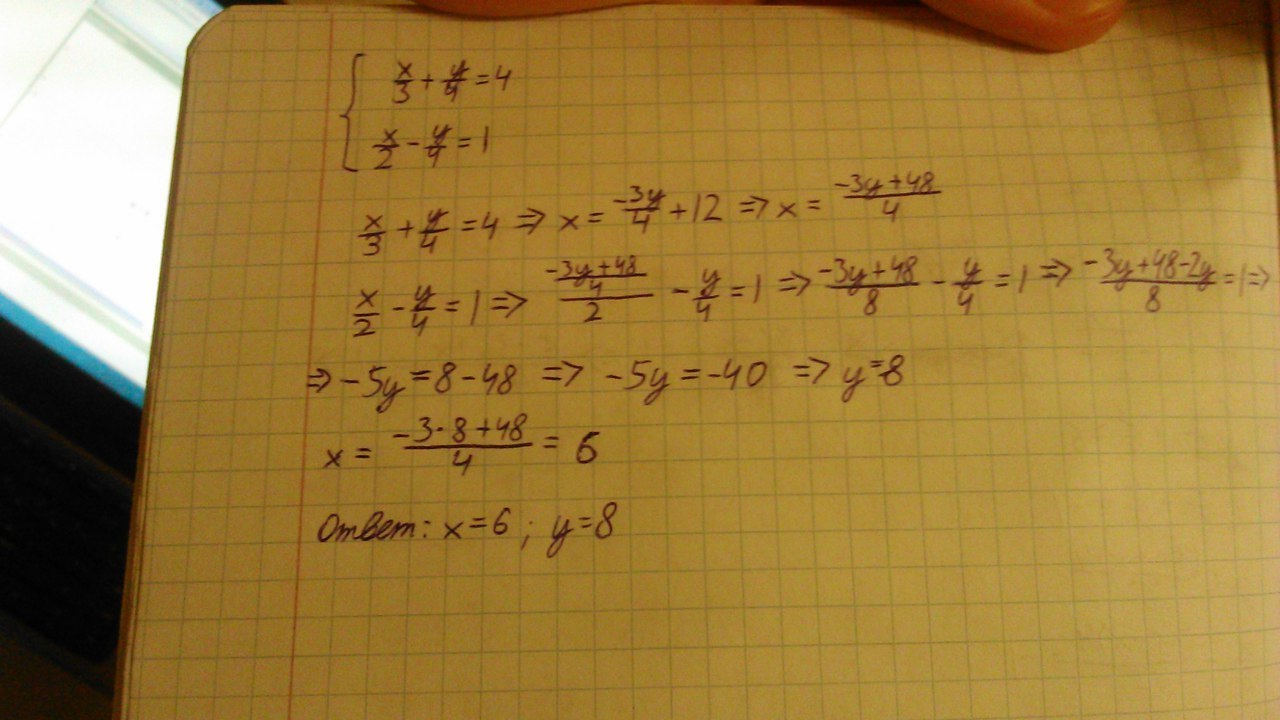 x/3 + y/4 = 4
x/2 - y/4 = 1
x/3 + y/4 = 4 => x = -3y/4 + 12 => x = (-3y+48)/4
x/2 - y/4 = 1 => ((-3y+48)/4)/2 - y/4 = 1 => (-3y+48)/8 - y/4 = 1 => (-3y+48-2y)/8 = 1 =>
=> -5y = 8-48 => -5y = -40 => y=8
x = (-3·8+48)/4 = 6
Ответ: x=6; y=8